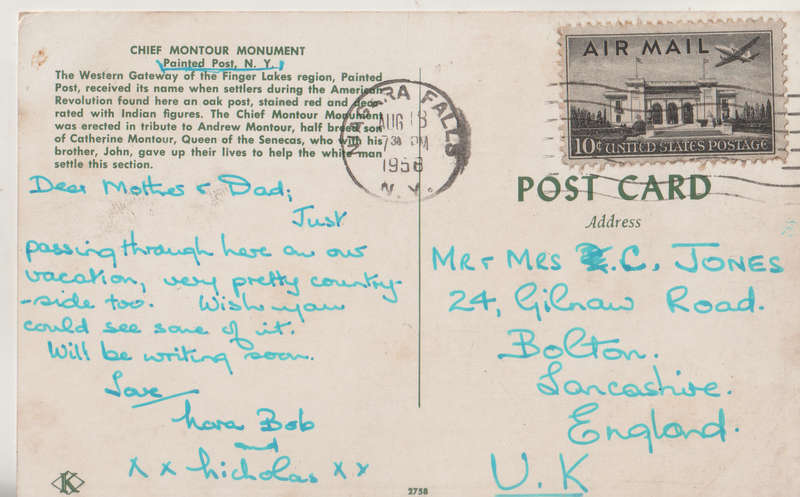 CHIEF MONTOUR MONUMENT
Painted Post, N. Y.
The Western Gateway of the Finger Lakes region, Painted
Post, received its name when settlers during the American
Revolution found here an oak post, stained red and deco-
rated with Indian figures. The Chief Montour Monument
was erected in tribute to Andrew Montour, half breed son
of Catherine Montour, Queen of the Senecas, who with his
brother, John, gave up their lives to help the white man
settle this section.
Dear Mother & Dad;
Just
passing through here on our
vacation, very pretty country
-side too. Wish you
could see some of it.
Will be writing soon.
Love
Nora Bob
and
x x Nicholas x x
K
2758
NIAGARA FALLS
AUG 18
730 PM
1958
N. Y.
AIR MAIL
10¢ UNITED STATES POSTAGE
POST CARD
Address
MR & MRS C. JONES
24, Gilnow Road.
Bolton.
Lancashire.
England.
U. K